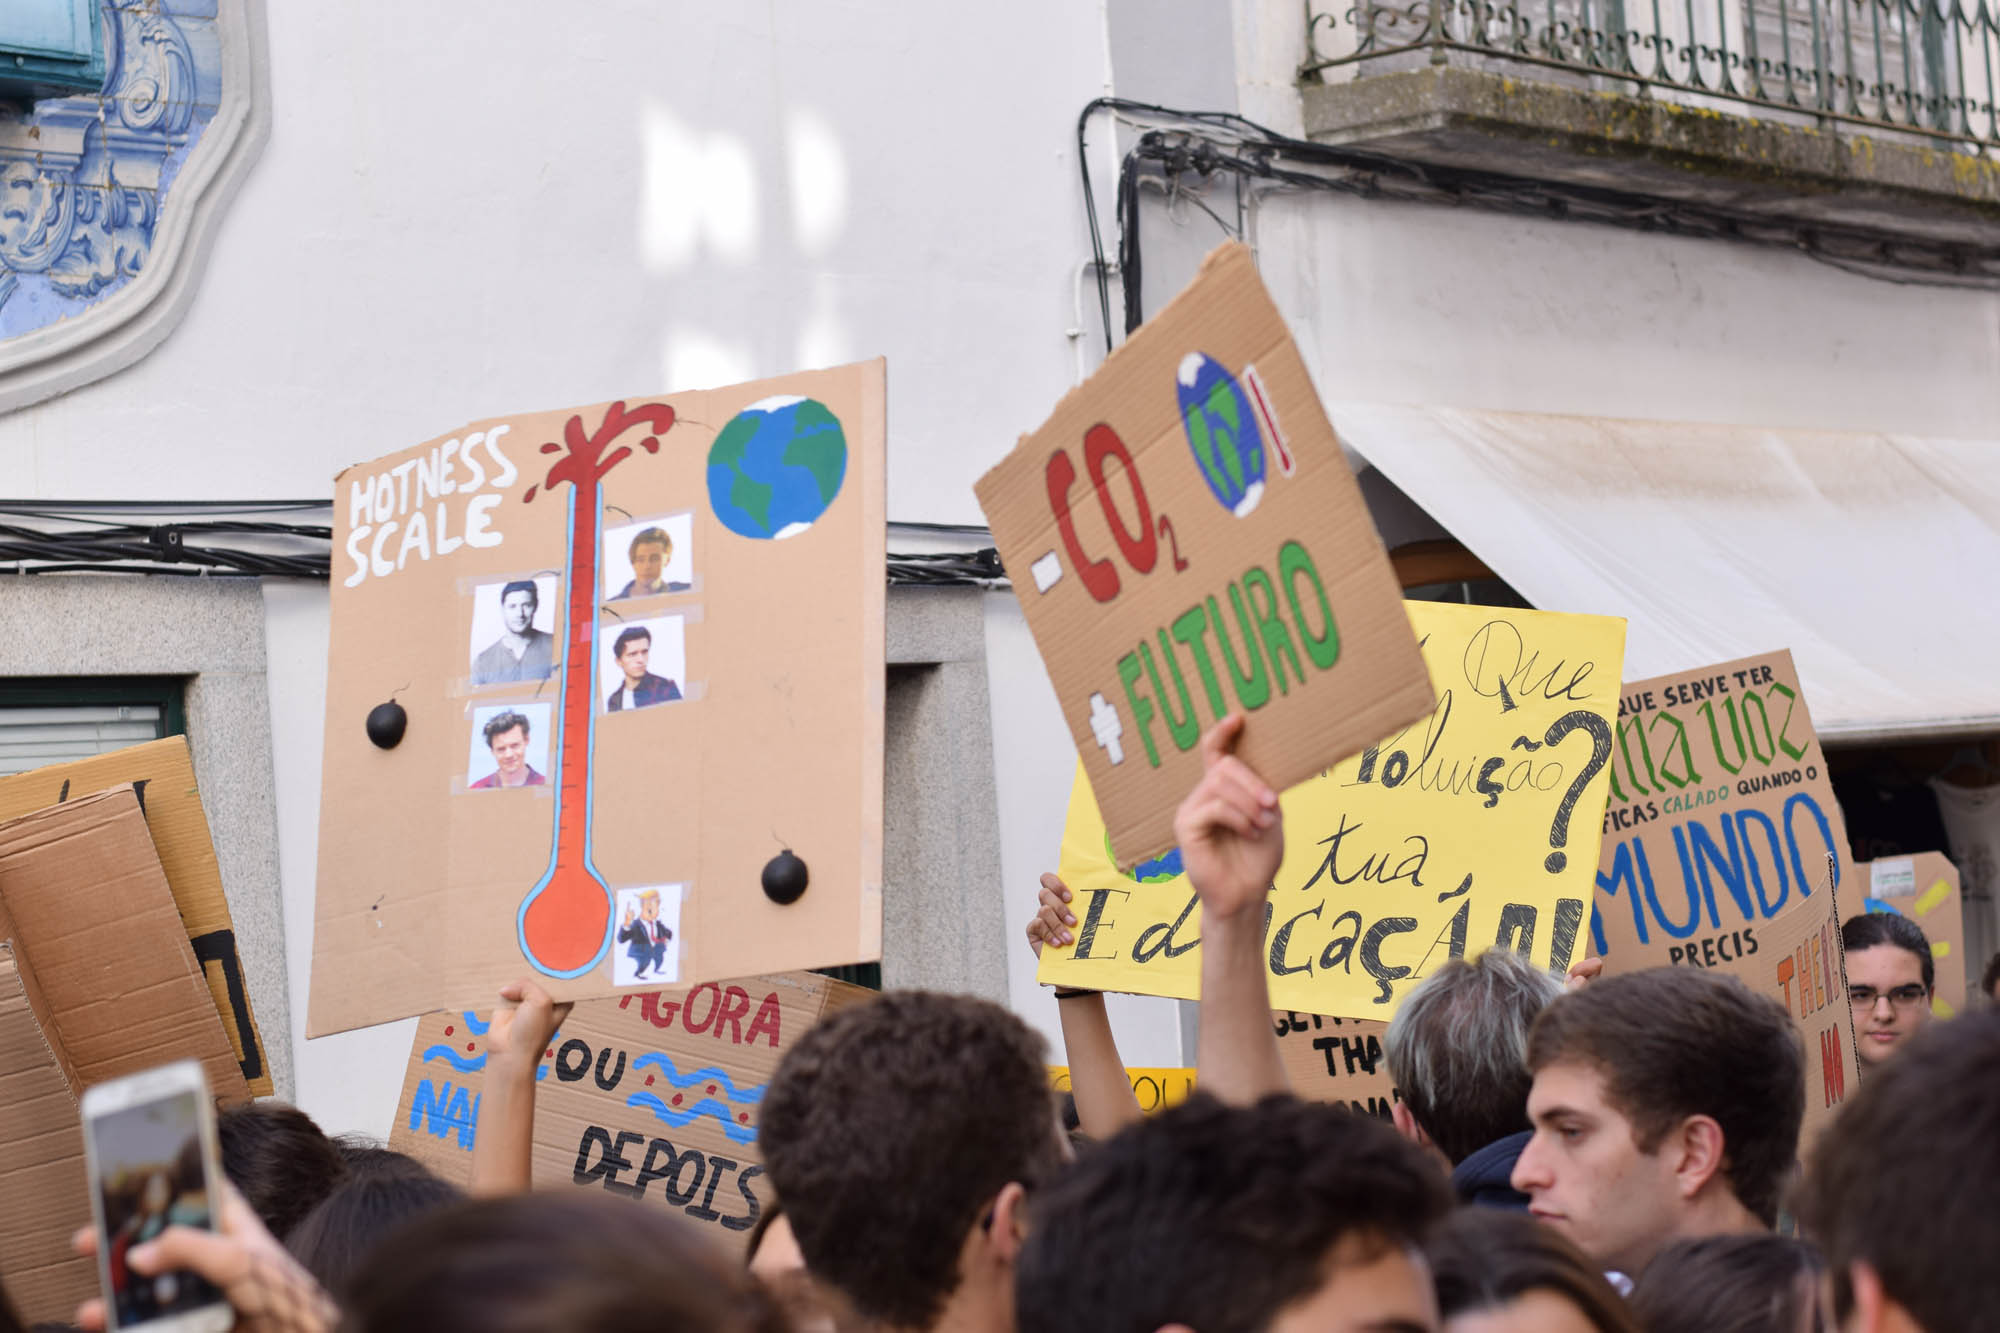 HOTNESS
SCALE
-CO2
+FUTURO
Que
Poluição?
tua
Educação!
QUE SERVE TER
uma voz
FICAS CALADO QUANDO O
MUNDO
PRECIS
AGORA
OU
DEPOIS
THA
NO